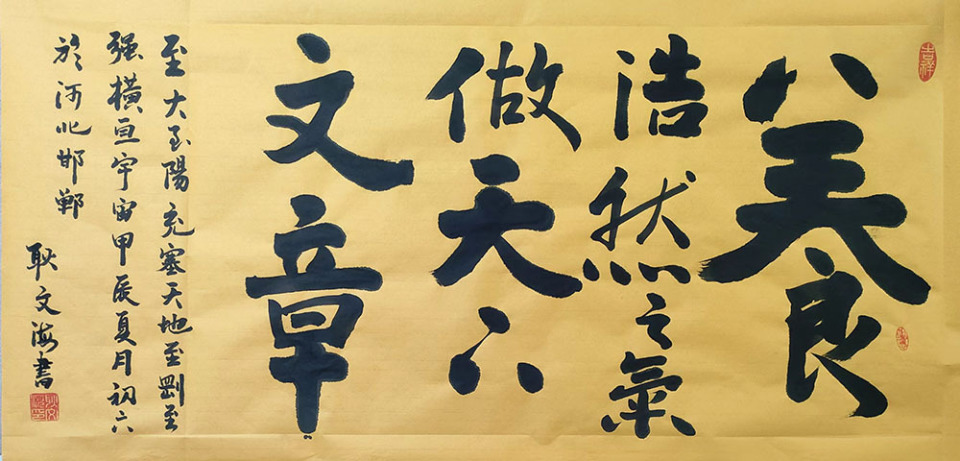 吉祥
養
浩然之氣
做天下
文章
至大至陽充塞天地至剛至
强橫亘宇宙甲辰夏月初六
於河北邯鄲
耿文海書